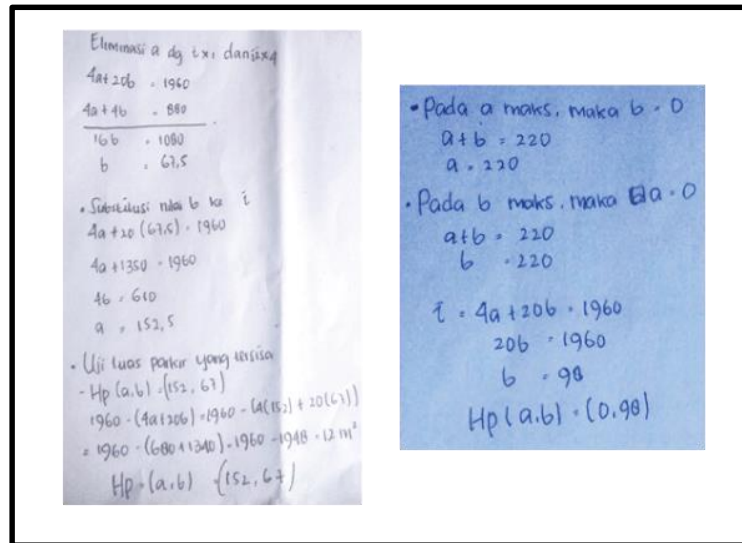 Eliminasi a dg i x1 dan ii x4
4a+20b = 1960
4a+4b = 880
16b = 1080
b = 67,5
• Substitusi nilai b ke i
4a+20(67,5) = 1960
4a+1350 = 1960
4b = 610
a = 152,5
• Uji luas parkir yang tersisa
- Hp (a,b) = (152, 67)
1960 - (4a+20b) = 1960 - (4(152) + 20(67))
= 1960 - (680+1340) = 1960 - 1948 = 12 m²
Hp = (a,b) = (152, 67)
• Pada a maks, maka b = 0
a+b = 220
a = 220
• Pada b maks, maka a = 0
a+b = 220
b = 220
i = 4a+20b = 1960
20b = 1960
b = 98
Hp (a,b) = (0,98)